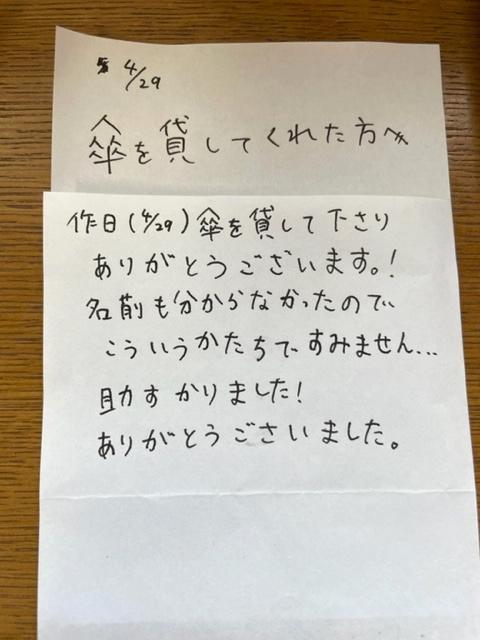 4/29
傘を貸してくれた方へ
作日(4/29)傘を貸して下さり
ありがとうございます。!
名前も分からなかったので、
こういうかたちですみません...
助すかりました!
ありがとうごさいました。